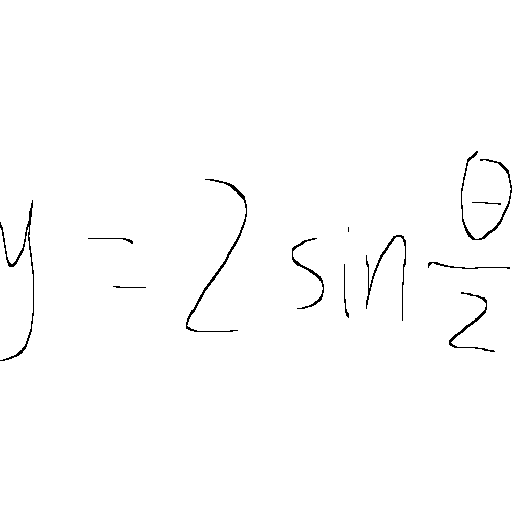 y = 2 sin θ/2